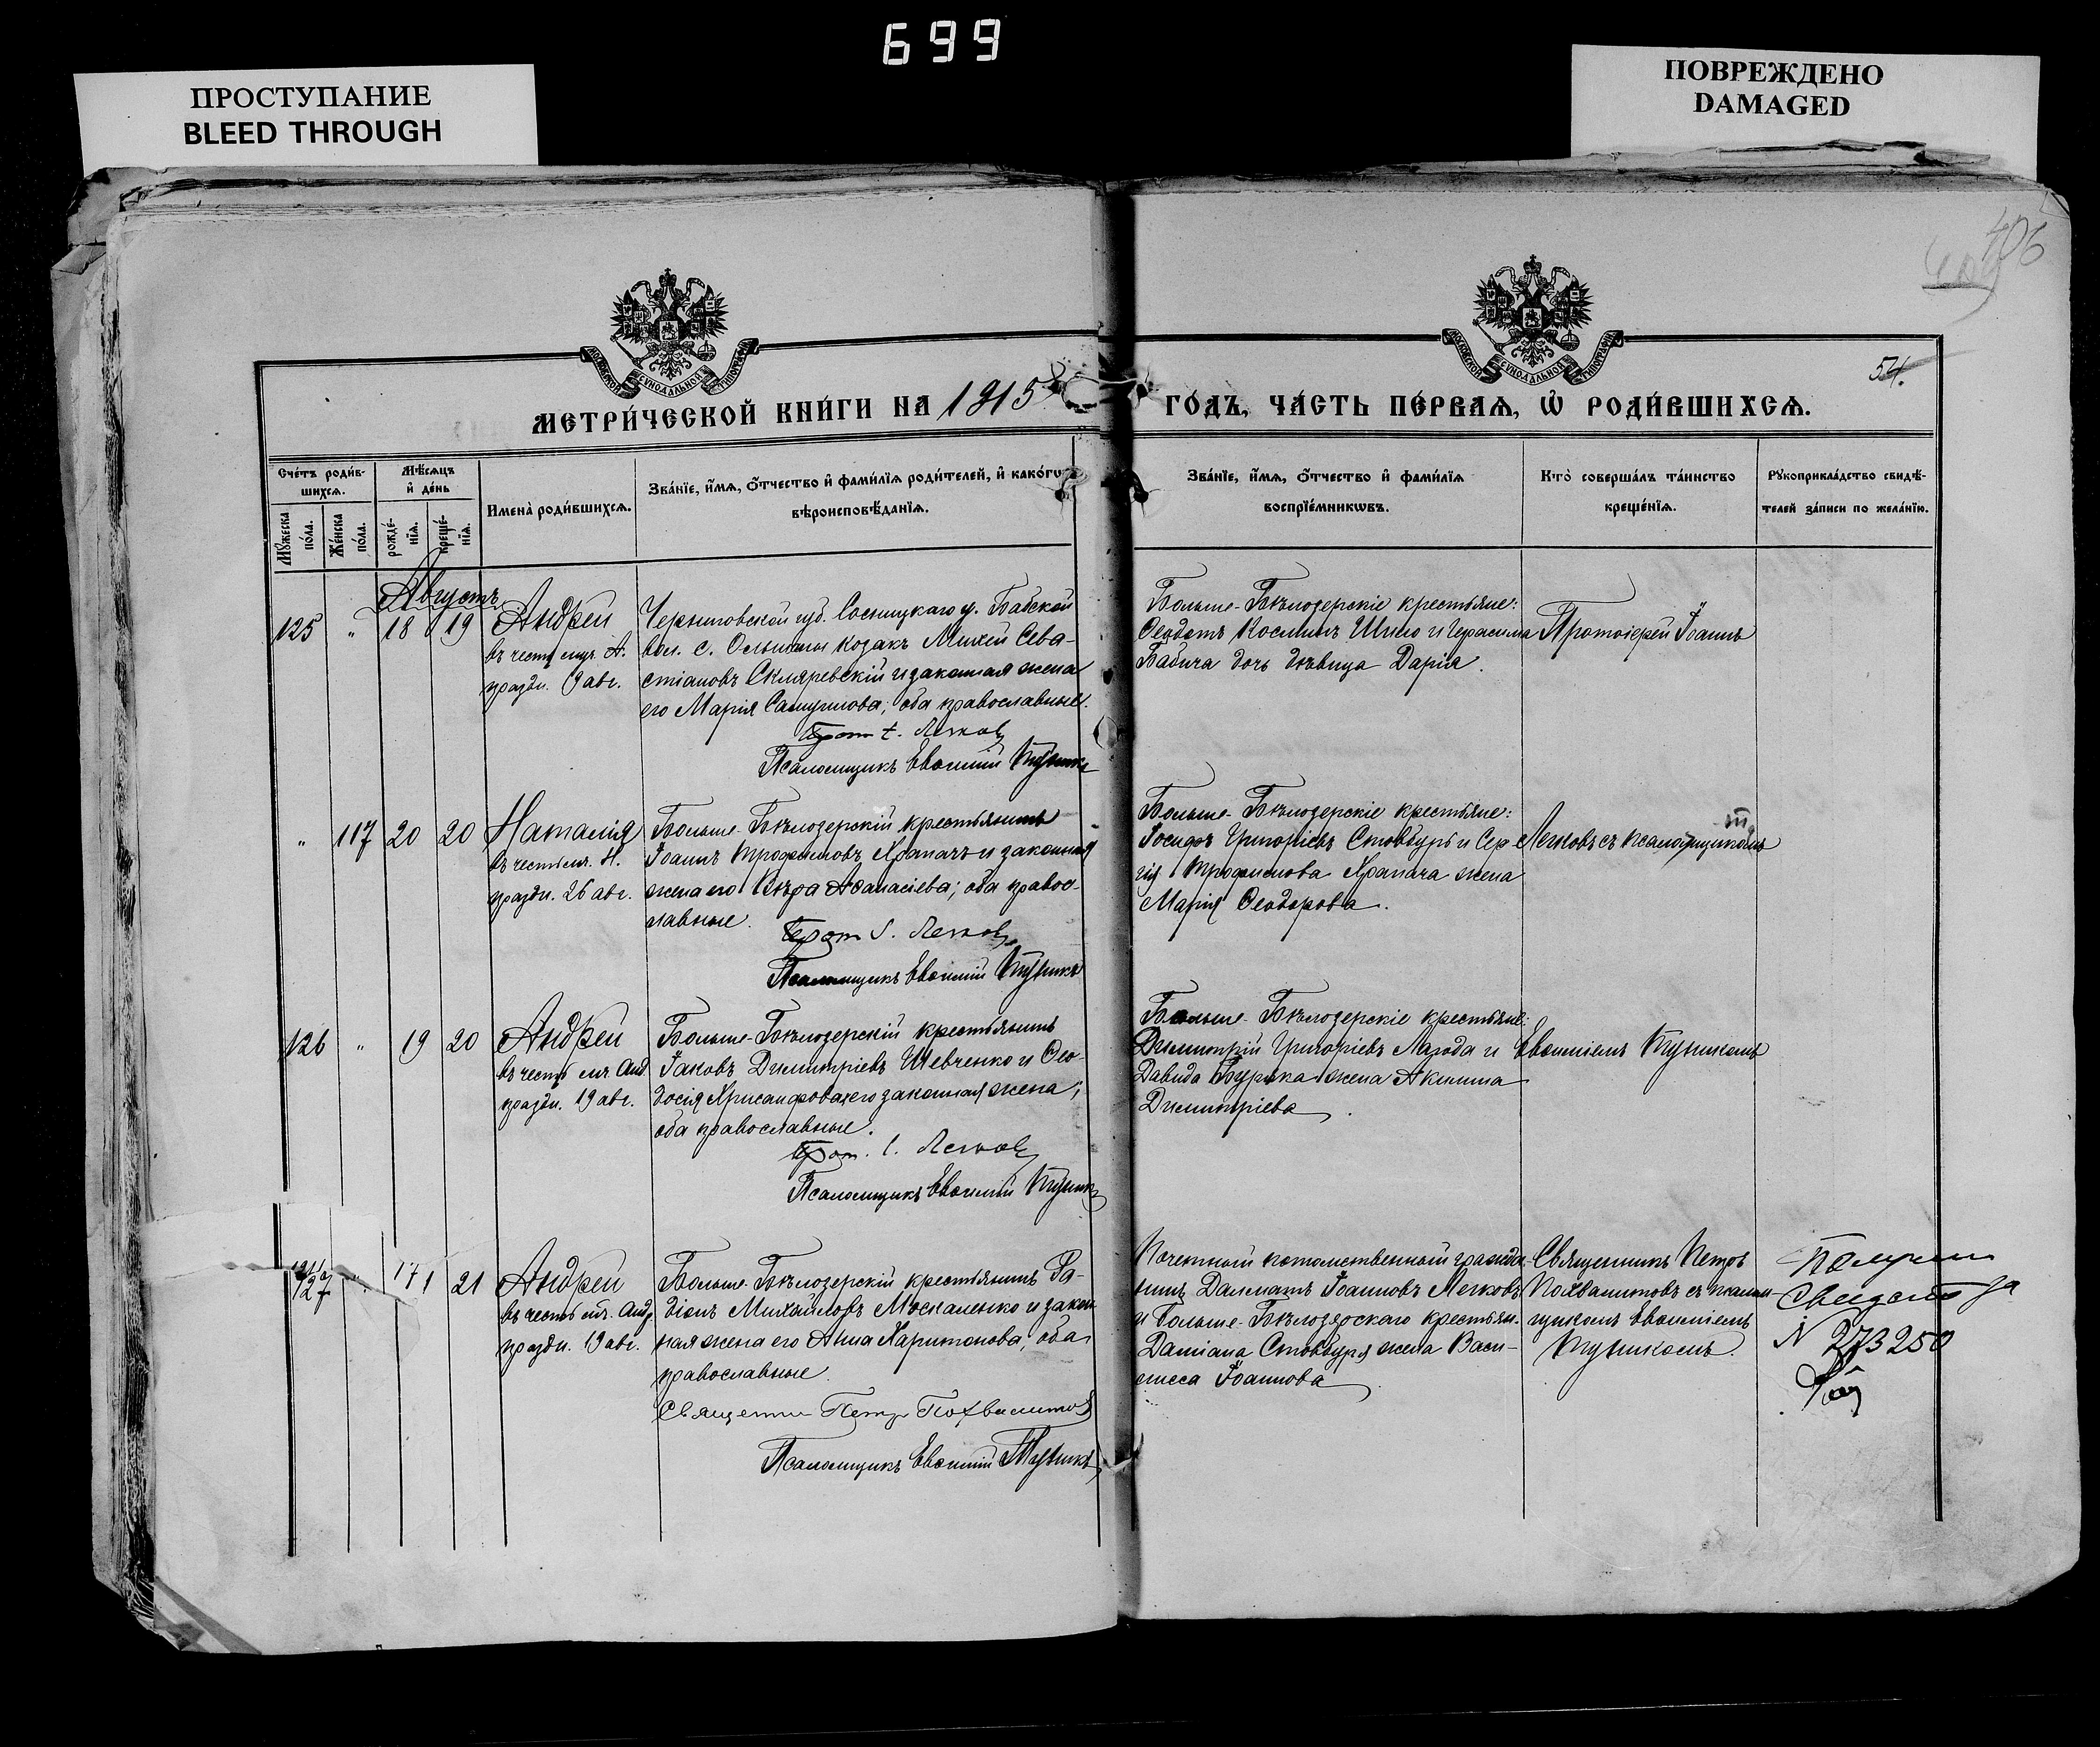 699
ПРОСТУПАНИЕ
BLEED THROUGH
ПОВРЕЖДЕНО
DAMAGED
406
54.
МОСКОВСКОЙ СУНОДАЛЬНОЙ ТИПОГРАФІИ
МОСКОВСКОЙ СУНОДАЛЬНОЙ ТИПОГРАФІИ
МЕТРИ́ЧЕСКОЙ КНИ́ГИ НА 1915
ГО́ДЪ, ЧА́СТЬ ПЕ́РВАѦ, Ѡ҆ РОДИ́ВШИХСѦ.
Сче́тъ роди́в-
шихсѧ.
Мѣ́сѧцъ
и҆ де́нь
Мꙋ́жеска
по́ла.
Же́нска
по́ла.
рожде́-
нїѧ.
креще́-
нїѧ.
Имена̀ роди́вшихсѧ.
Зва́нїе, и҆́мѧ, ѻ҆́тчество и҆ фами́лїѧ роди́телей, и҆ како́гѡ
вѣроисповѣ́данїѧ.
Зва́нїе, и҆́мѧ, ѻ҆́тчество и҆ фами́лїѧ
воспрїе́мникѡвъ.
Кто̀ соверша́лъ та́инство
креще́нїѧ.
Рꙋкоприкла́дство свидѣ́-
телей за́писи по жела́нїю.
Августъ
125 " 18 19 Андрей
въ честь муч. А.
праздн. 19 авг.
Черниговской губ. Сосницкаго у. Бабской
вол. с. Ольшаны козакъ Михей Сева-
стіановъ Скляревскій и законная жена
его Марія Самуилова; оба православные.
Прот. І. Легковъ
Псаломщикъ Евѳимій Тупикъ
Больше-Бѣлозерскіе крестьяне:
Ѳеодотъ Косминъ Шило и Герасима
Бабича дочь дѣвица Дарія.
Протоіерей Іоаннъ
" 117 20 20 Наталія
въ честь мч. Н.
праздн. 26 авг.
Больше-Бѣлозерскій крестьянинъ
Іоаннъ Трофимовъ Храпачъ и законная
жена его Вѣра Аѳанасіева; оба правос-
лавные.
Прот. І. Легковъ
Псаломщикъ Евѳимій Тупикъ
Больше-Бѣлозерскіе крестьяне:
Іосифъ Григоріевъ Стовбуръ и Сер-
гія Трофимова Храпача жена
Марія Ѳеодорова.
Легковъ съ псаломщикомъ
126 " 19 20 Андрей
въ честь мч. Анд.
праздн. 19 авг.
Больше-Бѣлозерскій крестьянинъ
Іаковъ Димитріевъ Шевченко и Ѳео-
досія Хрисанфова его законная жена;
оба православные.
Прот. І. Легковъ
Псаломщикъ Евѳимій Тупикъ
Больше-Бѣлозерскіе крестьяне:
Димитрій Григоріевъ Лагода и
Давида Буряка жена Акилина
Димитріева.
Евѳиміемъ Тупикомъ
127 " 17 21 Андрей
въ честь мч. Андр.
праздн. 19 авг.
Больше-Бѣлозерскій крестьянинъ Ра-
діонъ Михайловъ Москаленко и закон-
ная жена его Анна Харитонова; оба
православные.
Священникъ Петръ Похвалитовъ
Псаломщикъ Евѳимій Тупикъ
Почетный потомственный гражда-
нинъ Далматъ Іоанновъ Легковъ
и Больше-Бѣлозерскаго крестьян.
Даміана Стовбуря жена Васи-
лисса Іоаннова.
Священникъ Петръ
Похвалитовъ съ псалом-
щикомъ Евѳиміемъ
Тупикомъ.
Получил
Свидет за
N 273250